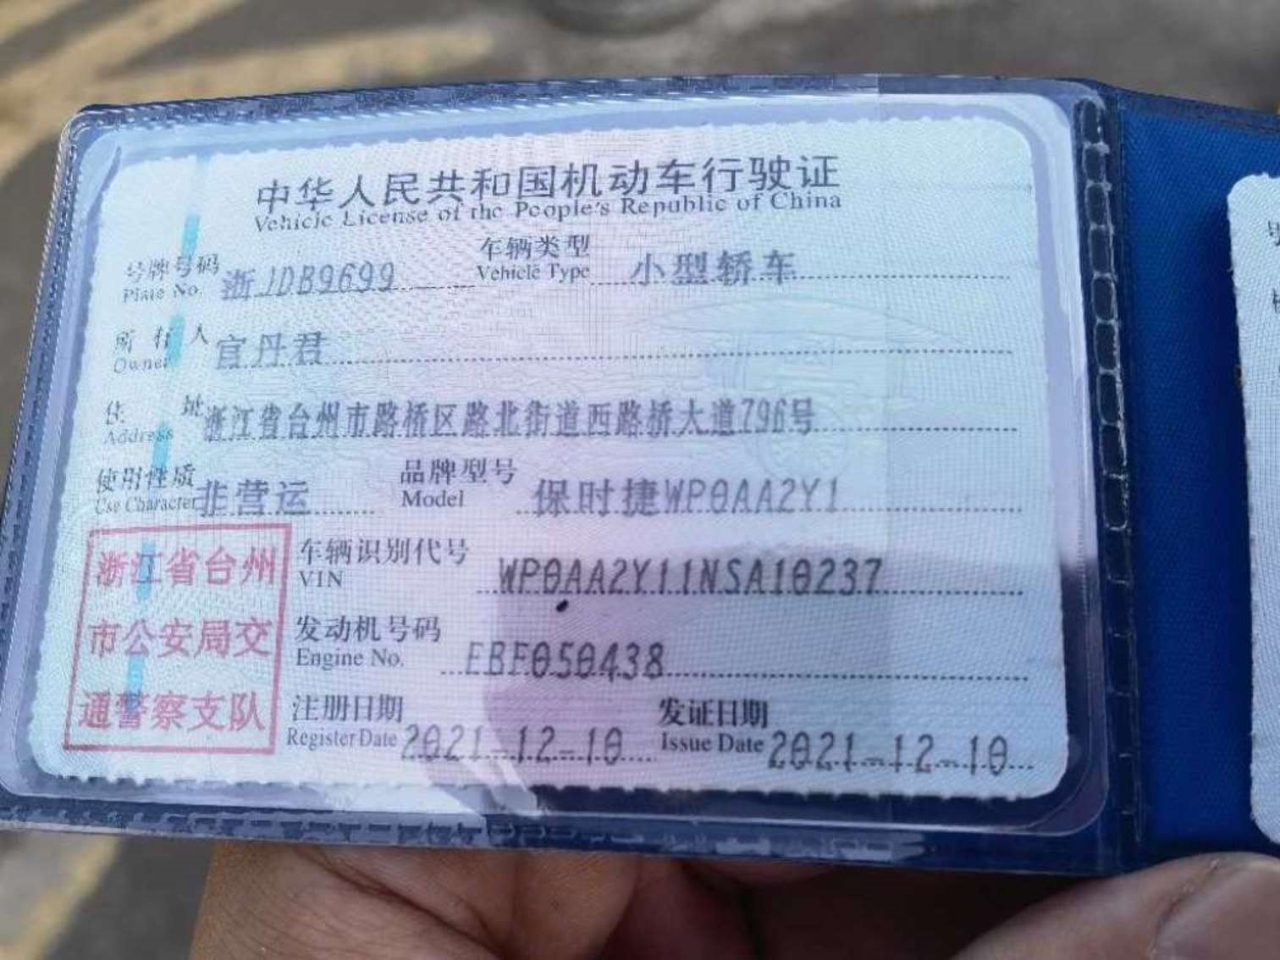 中华人民共和国机动车行驶证
Vehicle License of the People's Republic of China
号牌号码 浙JDB9699 车辆类型 小型轿车
Plate No. Vehicle Type
所有人 官丹君
Owner
住址 浙江省台州市路桥区路北街道西路桥大道796号
Address
使用性质 非营运 品牌型号 保时捷WP0AA2Y1
Use Character Model
浙江省台州
市公安局交
通警察支队
车辆识别代号 WP0AA2Y11NSA10237
VIN
发动机号码 EBF050438
Engine No.
注册日期 2021-12-10 发证日期 2021-12-10
Register Date Issue Date